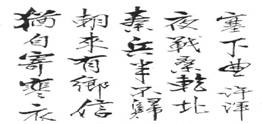 塞下曲 許渾
夜戰桑乾北
秦兵半不歸
朝來有鄉信
猶自寄寒衣